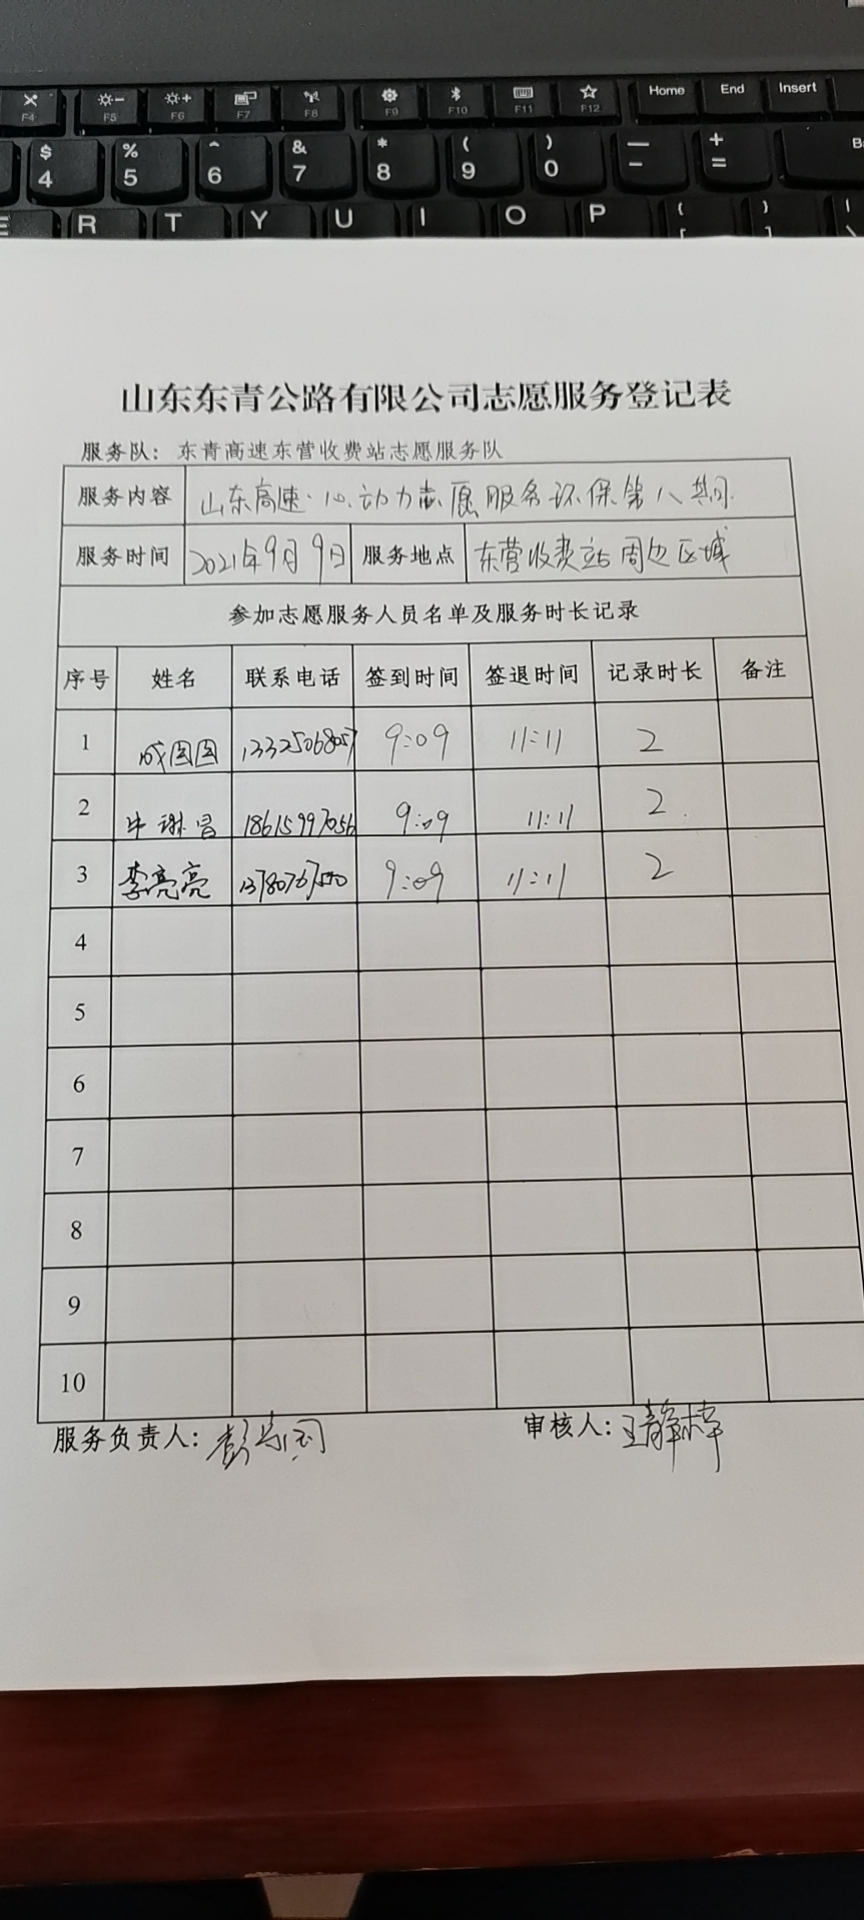 F4 F5 F6 F7 F8 F9 F10 F11 F12 Home End Insert
$ % ^ & * ( ) — +
4 5 6 7 8 9 0 - =
E R T Y U I O P
山东东青公路有限公司志愿服务登记表
服务队：东青高速东营收费站志愿服务队
服务内容 山东高速·心动力志愿服务环保第八期
服务时间 2021年9月9日 服务地点 东营收费站周边区域
参加志愿服务人员名单及服务时长记录
序号 姓名 联系电话 签到时间 签退时间 记录时长 备注
1 成图图 13325068057 9:09 11:11 2
2 牛 昌 18615997056 9:09 11:11 2
3 李亮亮 9:09 11:11 2
4
5
6
7
8
9
10
服务负责人： 审核人：王静